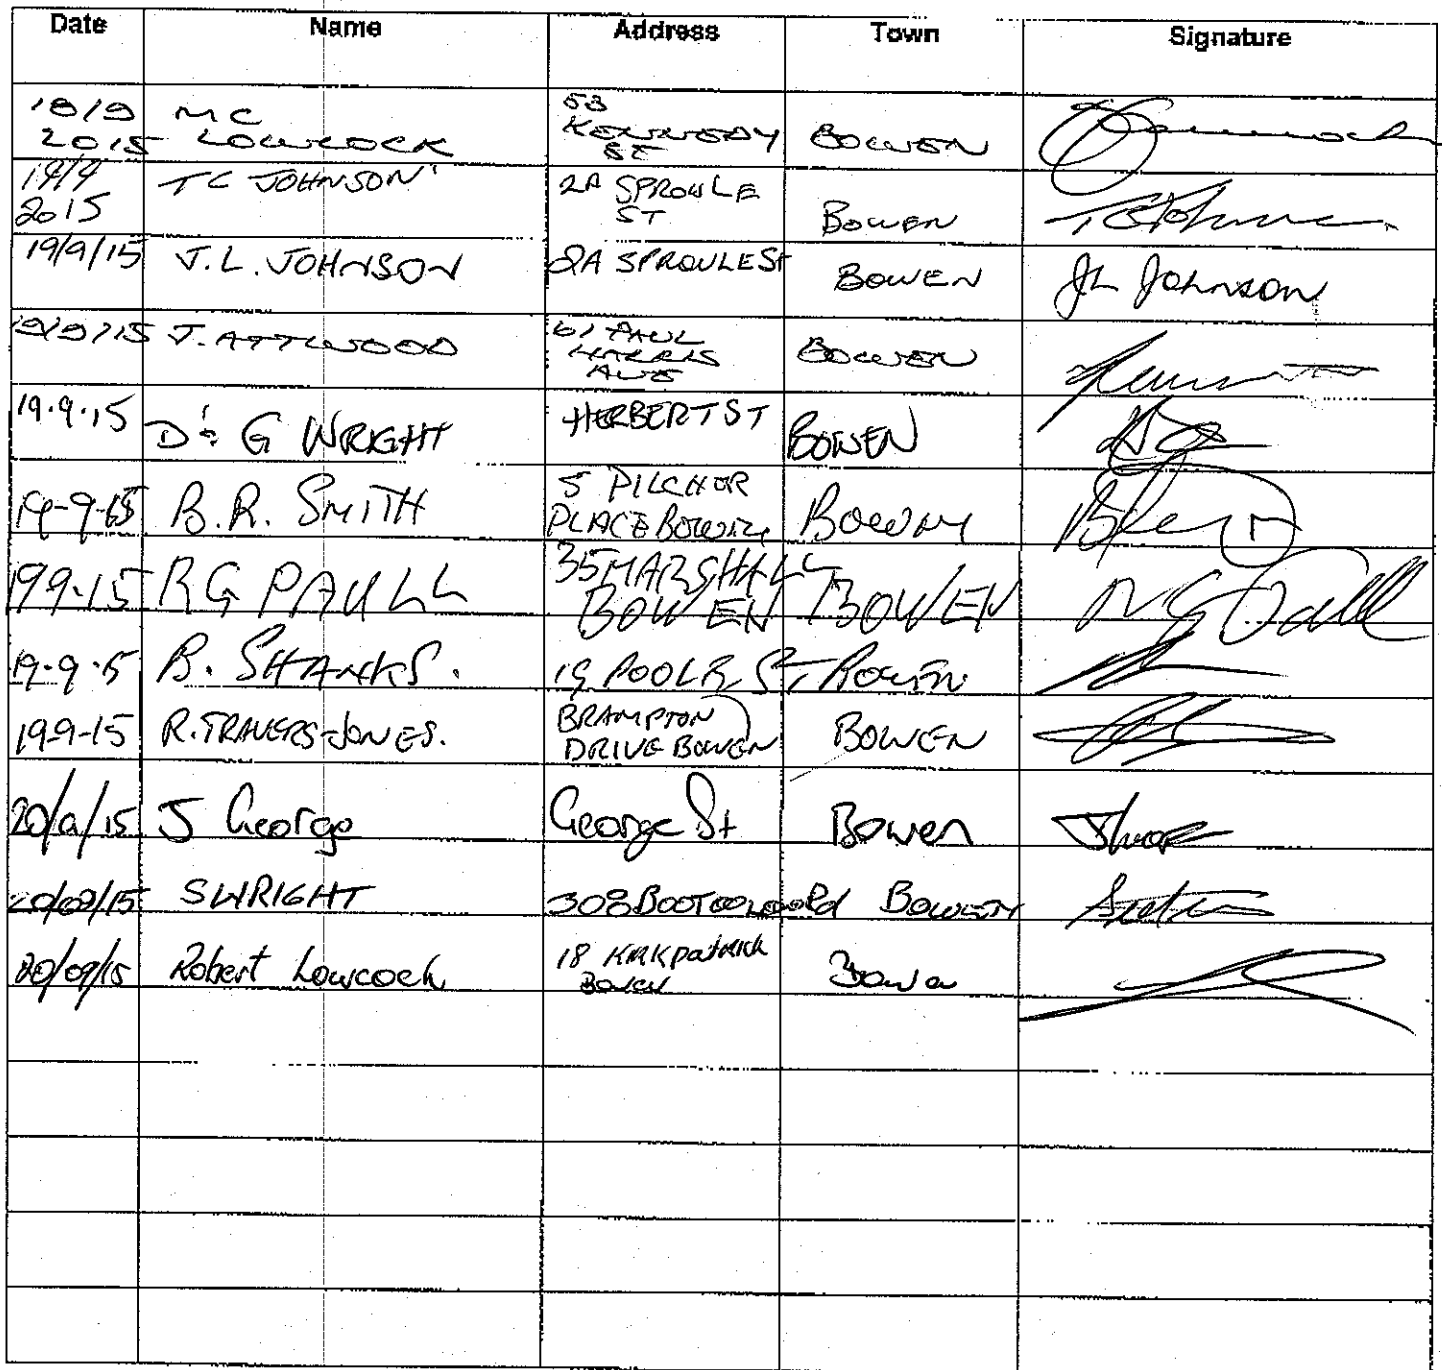 Date Name Address Town Signature
18/9 MC 53
2015 LOWCOCK KENNEDY ST BOWEN
19/9 TC JOHNSON 2A SPROULE
2015 ST BOWEN
19/9/15 J.L. JOHNSON 2A SPROULE St BOWEN JL Johnson
19/9/15 J. ATTWOOD 61 PAUL
HARRIS BOWEN
AVE
19.9.15 D & G WRIGHT HERBERT ST BOWEN
19-9-15 B.R. SMITH 5 PILCHER
PLACE BOWEN Bowen
199.15 RG PAULL 35 MARSHALL
BOWEN BOWEN RG Paull
19.9.15 B. SHANKS. 19 POOLE ST BOWEN
19-9-15 R. TRAVERS-JONES. BRAMPTON
DRIVE BOWEN BOWEN
20/9/15 J George George St Bowen
20/09/15 S WRIGHT 308 Bowen
20/09/15 Robert Lowcock 18 Kirkpatrick
Bowen Bowen